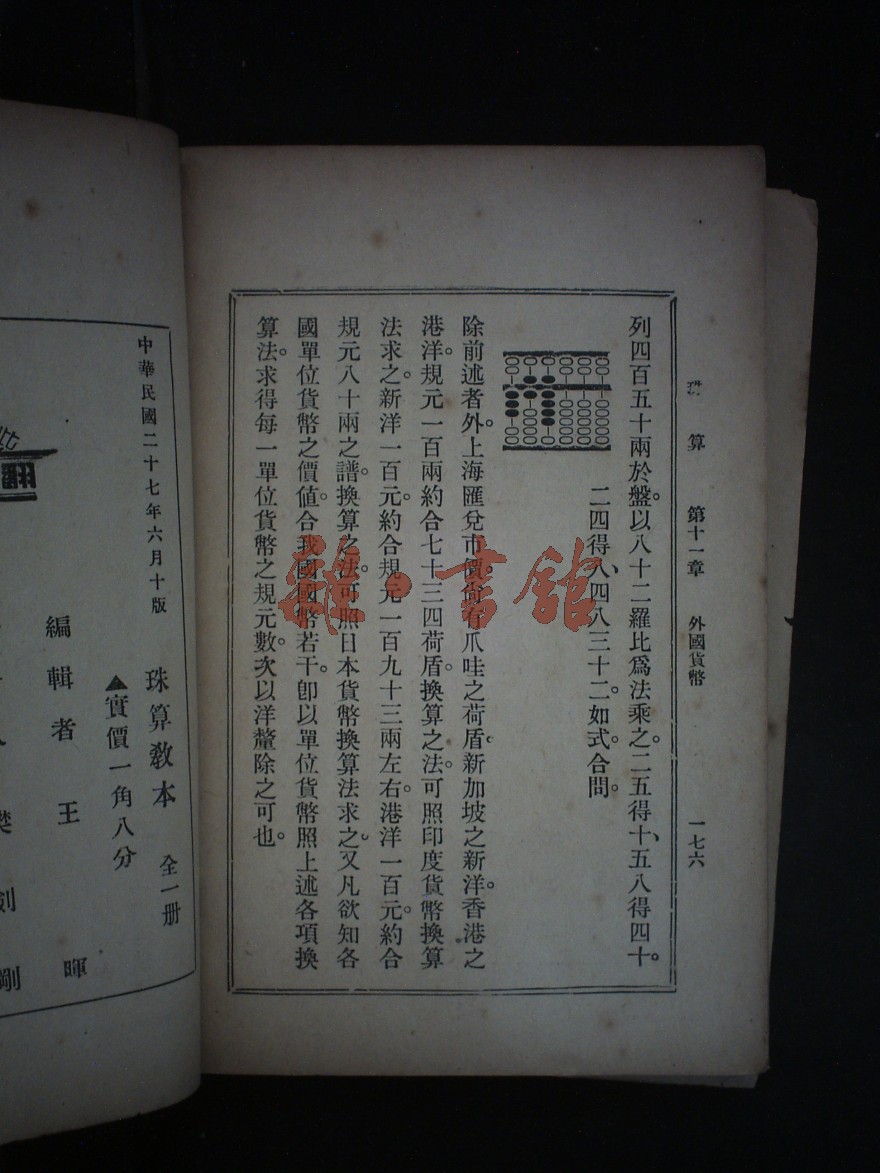 珠算 第十一章 外國貨幣 一七六
列四百五十兩於盤。以八十二羅比爲法乘之。二五得十、五八得四十。
二四得八、四八三十二。如式合問。
除前述者外。上海匯兌市價。尙有爪哇之荷盾。新加坡之新洋。香港之
港洋。規元一百兩約合七十三四荷盾。換算之法。可照印度貨幣換算
法求之。新洋一百元。約合規元一百九十三兩左右。港洋一百元。約合
規元八十兩之譜。換算之法。可照日本貨幣換算法求之。又凡欲知各
國單位貨幣之價值。合我國國幣若干。卽以單位貨幣照上述各項換
算法。求得每一單位貨幣之規元數。次以洋釐除之可也。
雜·書館
珠算教本 全一册
▲實價一角八分
中華民國二十七年六月十版
編輯者 王 暉
樊劍剛
翻